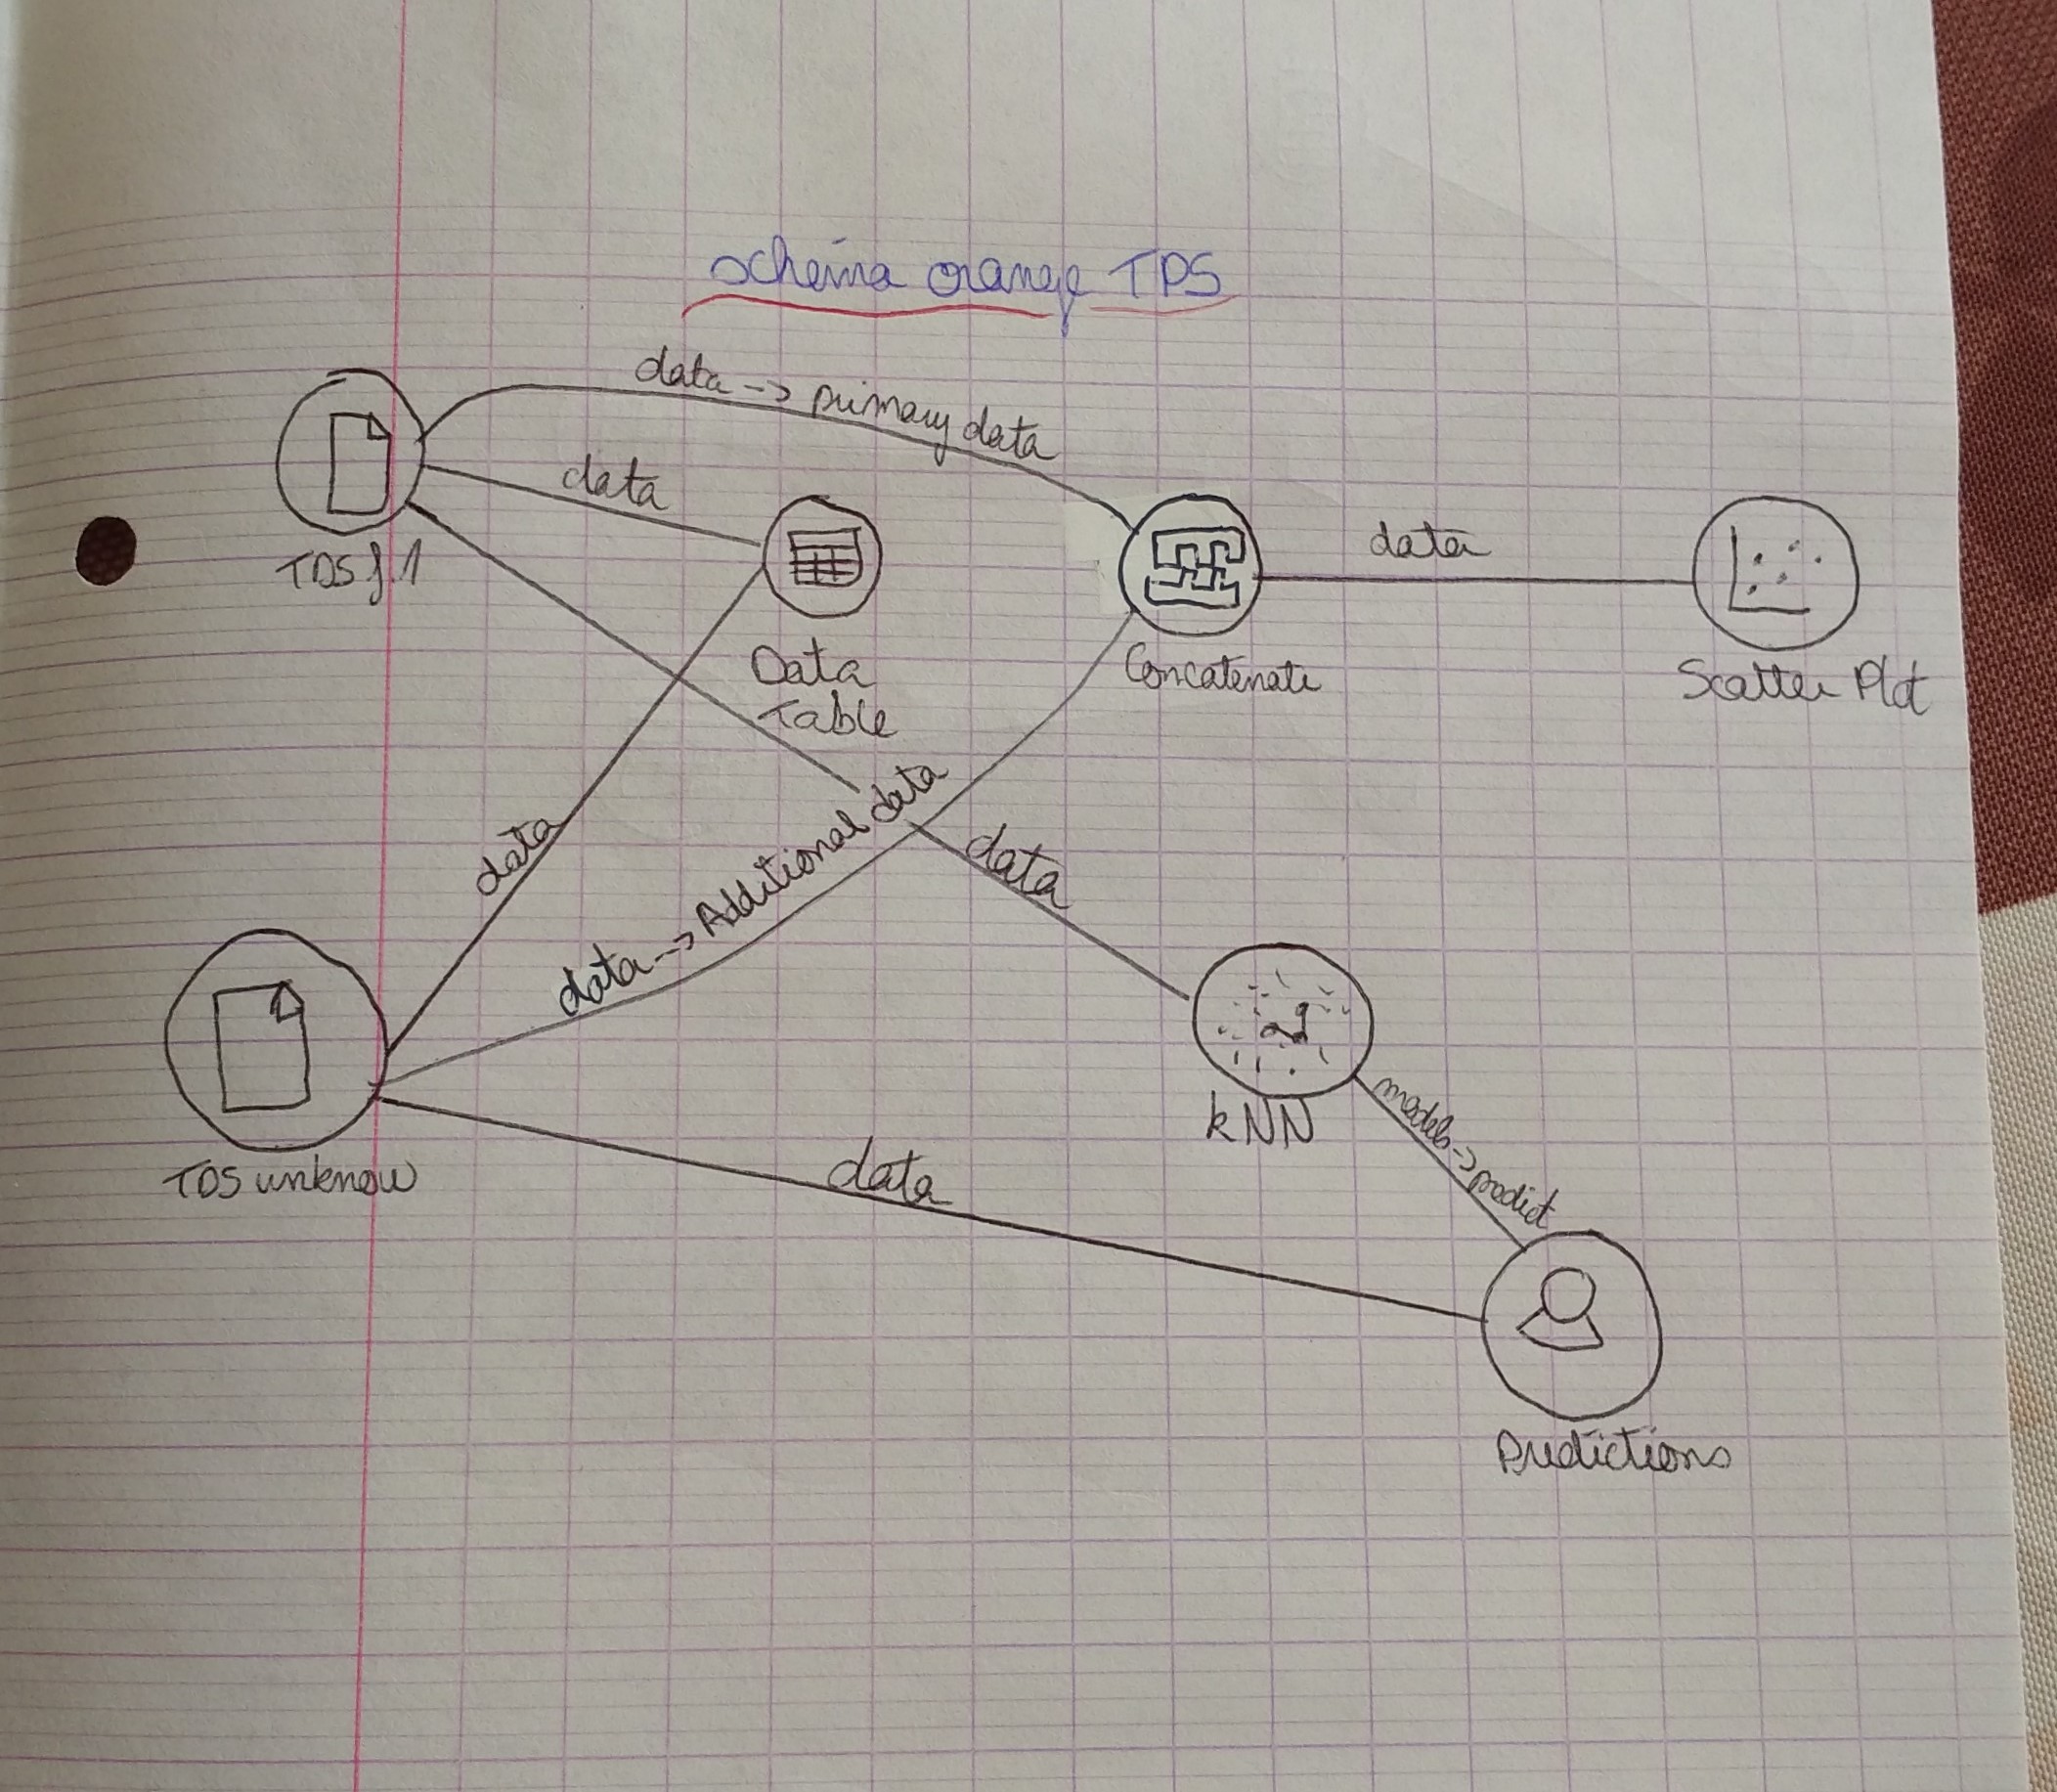 schéma orange TP5
data -> primary data
data
TDS f.1
data
Data
Table
Concatenate
Scatter Plot
data
data -> Additional data
data
kNN
models -> predict
TDS unknow
data
Predictions